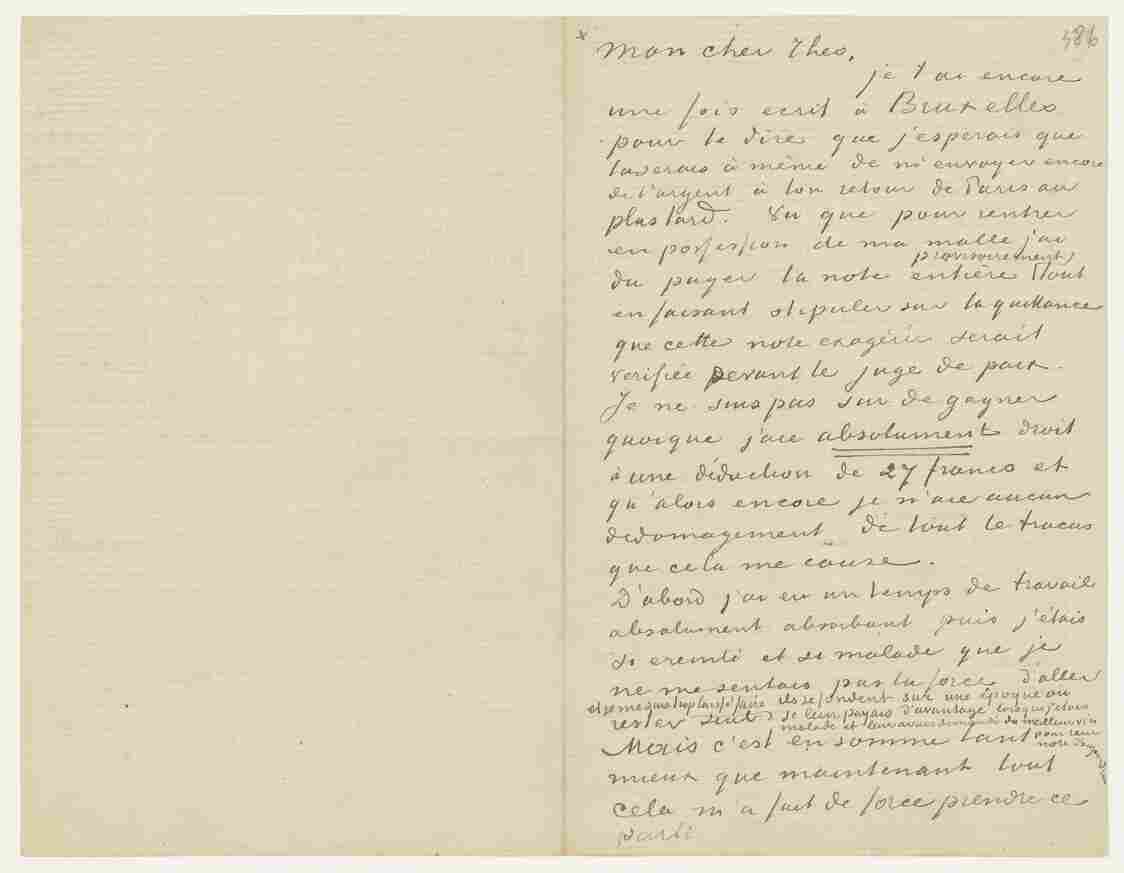 486
Mon cher Theo,
je t'ai encore
une fois ecrit à Bruxelles
pour te dire que j'esperais que
tu serais à même de m'envoyer encore
de l'argent à ton retour de Paris au
plus tard. Vu que pour rentrer
en possession de ma malle j'ai
provisoirement
du payer la note entière (tout
en faisant stipuler sur la quittance
que cette note exagérée serait
verifiée devant le juge de paix.
Je ne suis pas sur de gagner
quoique j'aie absolument droit
à une déduction de 27 francs et
qu'alors encore je n'aie aucun
dedomagement de tout le tracas
que cela me cause.
D'abord j'ai eu un temps de travail
absolument absorbant puis j'étais
si ereinté et si malade que je
ne me sentais pas la force d'aller
ils se fondent sur une époque où
rester seul
je leur payais d'avantage lorsque j'etais
malade et leur avais demandé du meilleur vin
Mais c'est en somme tant
pour leur
note
mieux que maintenant tout
cela m'a fait de force prendre ce
parti